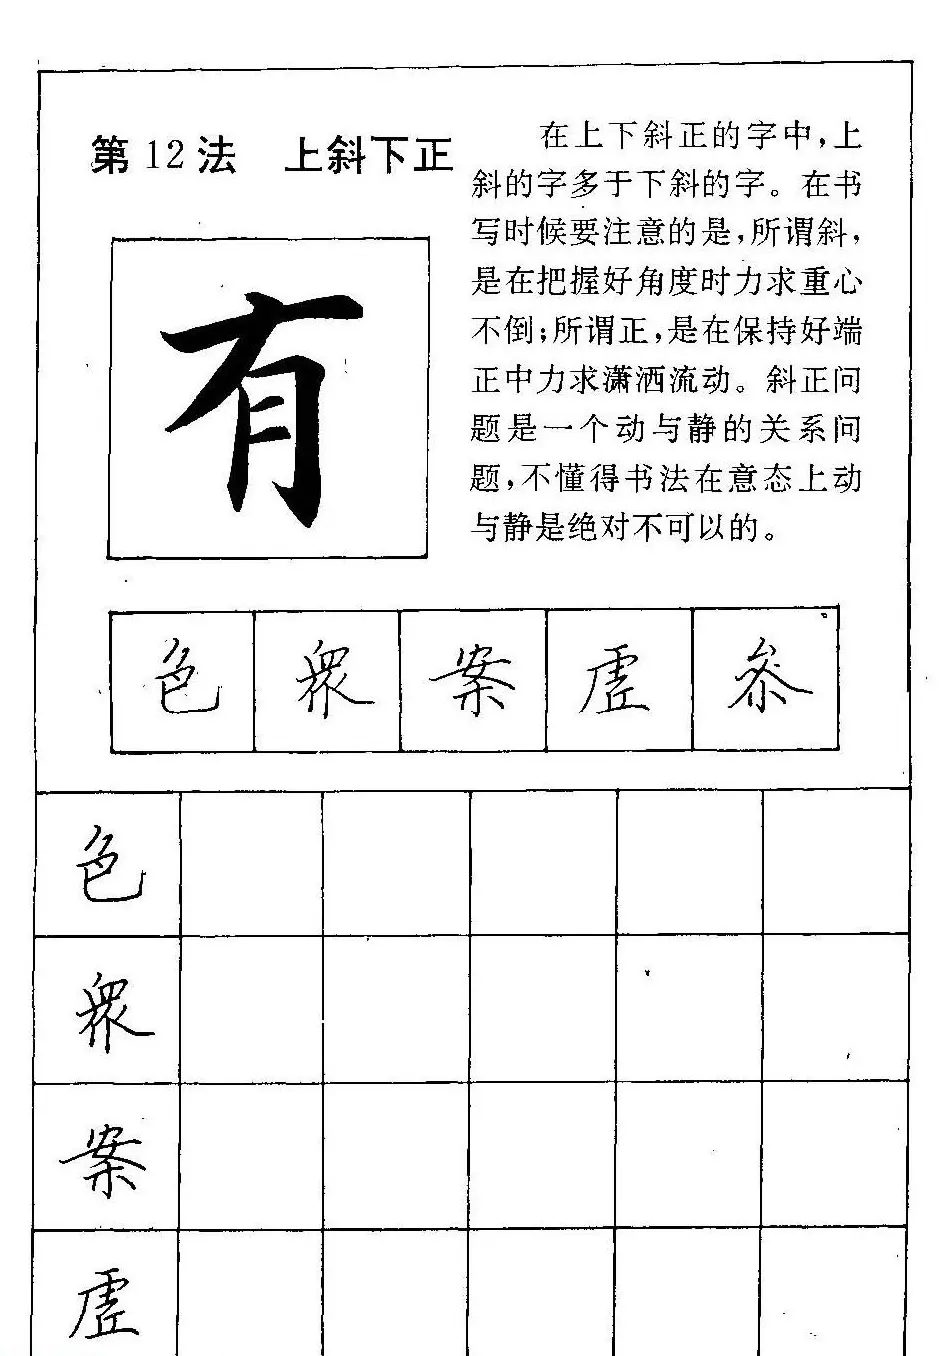 第12法 上斜下正
在上下斜正的字中,上
斜的字多于下斜的字。在书
写时候要注意的是,所谓斜,
是在把握好角度时力求重心
不倒;所谓正,是在保持好端
正中力求潇洒流动。斜正问
题是一个动与静的关系问
题,不懂得书法在意态上动
与静是绝对不可以的。
有
色 眾 案 虚 参
色
眾
案
虚